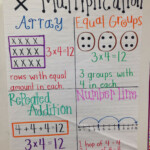 x Multiplication
Array
XXXX
XXXX
XXXX
3×4=12
rows with equal
amount in each
Equal Groups
3×4=12
3 groups with
4 in each
Repeated
Addition
4+4+4=12
3×4=12
Number Line